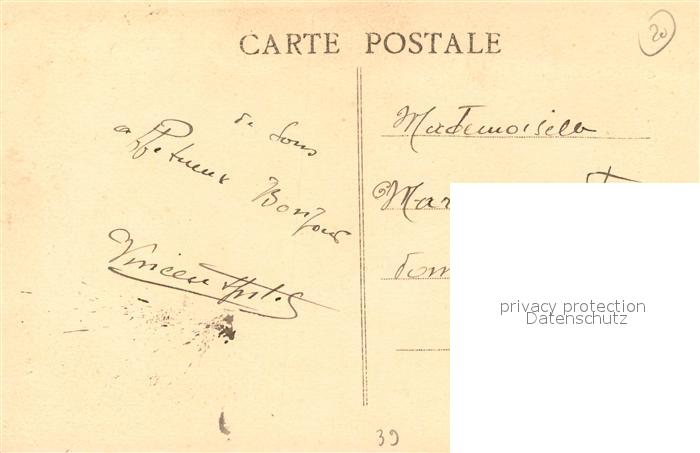 20
CARTE POSTALE
de tous
affectueux Bonjour
Vincent
Mademoiselle
Mar
privacy protection
Datenschutz
39